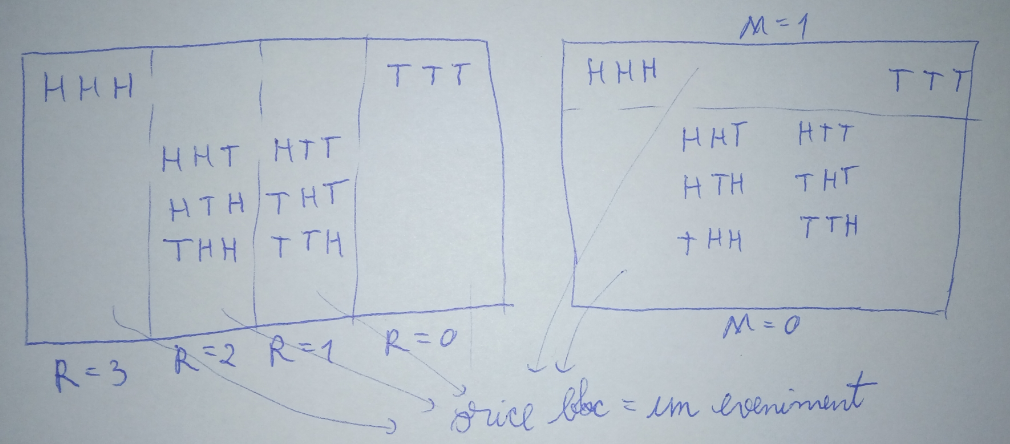 M = 1
HHH TTT
HHT HTT
HTH THT
THH TTH
R = 3 R = 2 R = 1 R = 0
HHH TTT
HHT HTT
HTH THT
THH TTH
M = 0
orice bloc = un eveniment